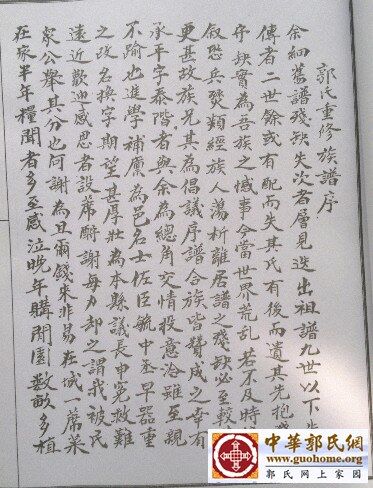 郭氏重修族譜序
余細舊譜殘缺失次者層見迭出祖譜九世以下失
傳者二世餘或有配而失其氏有後而遺其先抱
序缺實為吾族之憾事今當世界荒乱若不及時
叙恐兵燹類經族人蕩析離居譜之殘缺必至較
更甚故族兄其為倡議序譜合族皆贊成之幸有
承平字泰階者與余為總角交情投意洽雖至親
不踰也進學補廩為邑名士佐臣毓中丞早器重
之改名換字期望甚厚壯為本縣議長申冤救難
遠近歡迎感恩者設席酬謝每力却之謂我被民
眾公舉其分也何謝為且爾錢來非易在誠一席菜
在家半年糧聞者多至感泣晚年購閒園數畝多植
中華郭氏網
www.guohome.org
郭氏網上家園